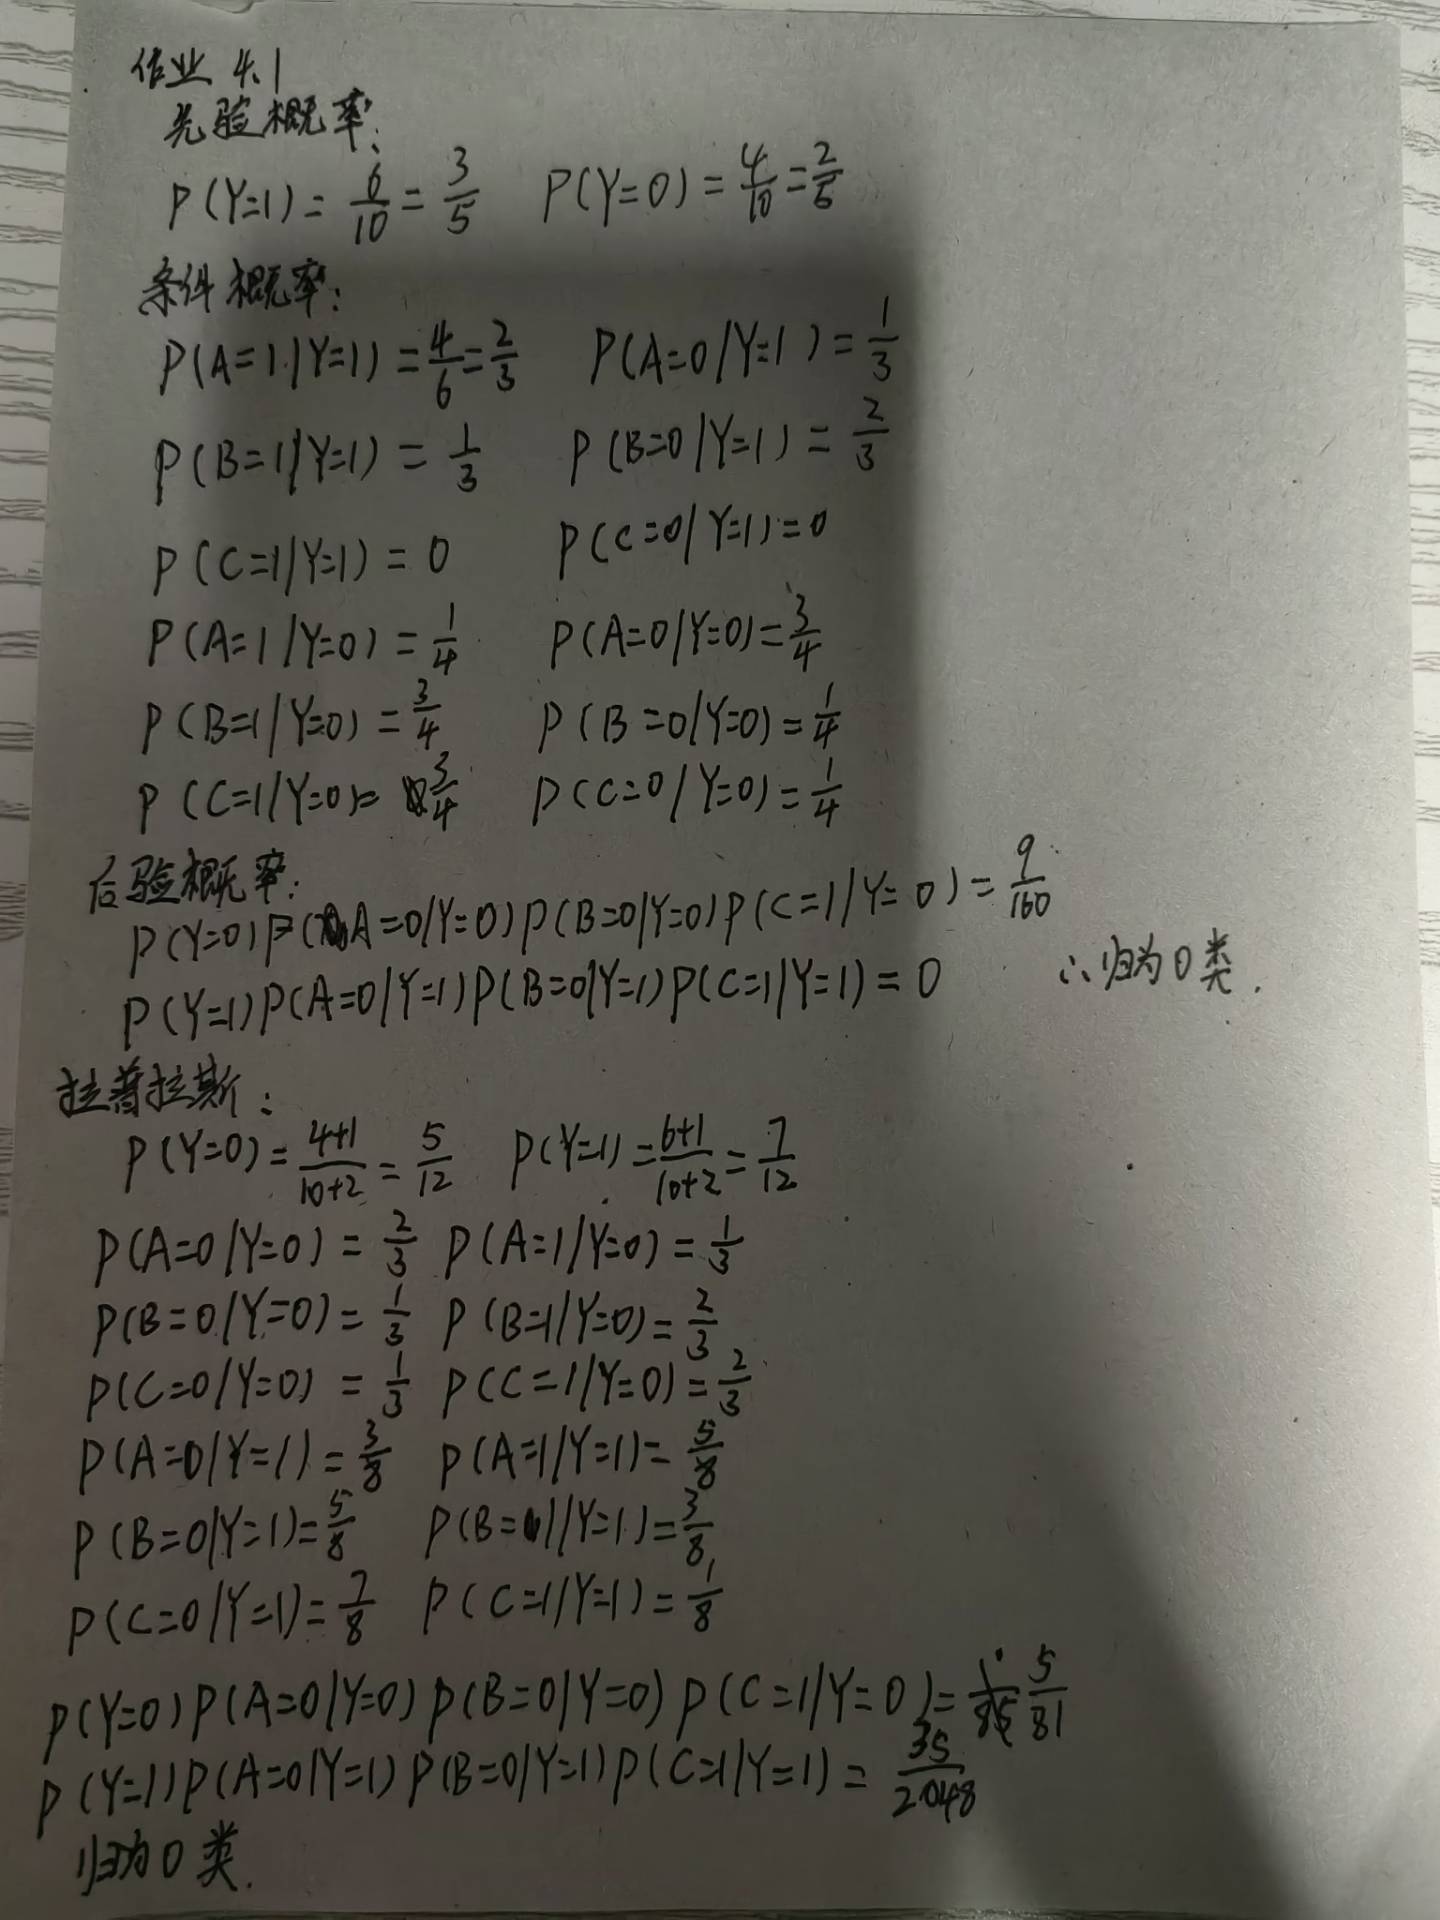 作业 4.1
先验概率:
P(Y=1) = 6/10 = 3/5 P(Y=0) = 4/10 = 2/5
条件概率:
P(A=1|Y=1) = 4/6 = 2/3 P(A=0|Y=1) = 1/3
P(B=1|Y=1) = 1/3 P(B=0|Y=1) = 2/3
P(C=1|Y=1) = 0 P(C=0|Y=1) = 0
P(A=1|Y=0) = 1/4 P(A=0|Y=0) = 3/4
P(B=1|Y=0) = 3/4 P(B=0|Y=0) = 1/4
P(C=1|Y=0) = 3/4 P(C=0|Y=0) = 1/4
后验概率:
P(Y=0) P(A=0|Y=0) P(B=0|Y=0) P(C=1|Y=0) = 9/160
P(Y=1) P(A=0|Y=1) P(B=0|Y=1) P(C=1|Y=1) = 0 ∴归为0类.
拉普拉斯:
P(Y=0) = 4+1/10+2 = 5/12 P(Y=1) = 6+1/10+2 = 7/12
P(A=0|Y=0) = 2/3 P(A=1|Y=0) = 1/3
P(B=0|Y=0) = 1/3 P(B=1|Y=0) = 2/3
P(C=0|Y=0) = 1/3 P(C=1|Y=0) = 2/3
P(A=0|Y=1) = 3/8 P(A=1|Y=1) = 5/8
P(B=0|Y=1) = 5/8 P(B=1|Y=1) = 3/8
P(C=0|Y=1) = 7/8 P(C=1|Y=1) = 1/8
P(Y=0) P(A=0|Y=0) P(B=0|Y=0) P(C=1|Y=0) = 5/81
P(Y=1) P(A=0|Y=1) P(B=0|Y=1) P(C=1|Y=1) = 35/2048
归为0类.